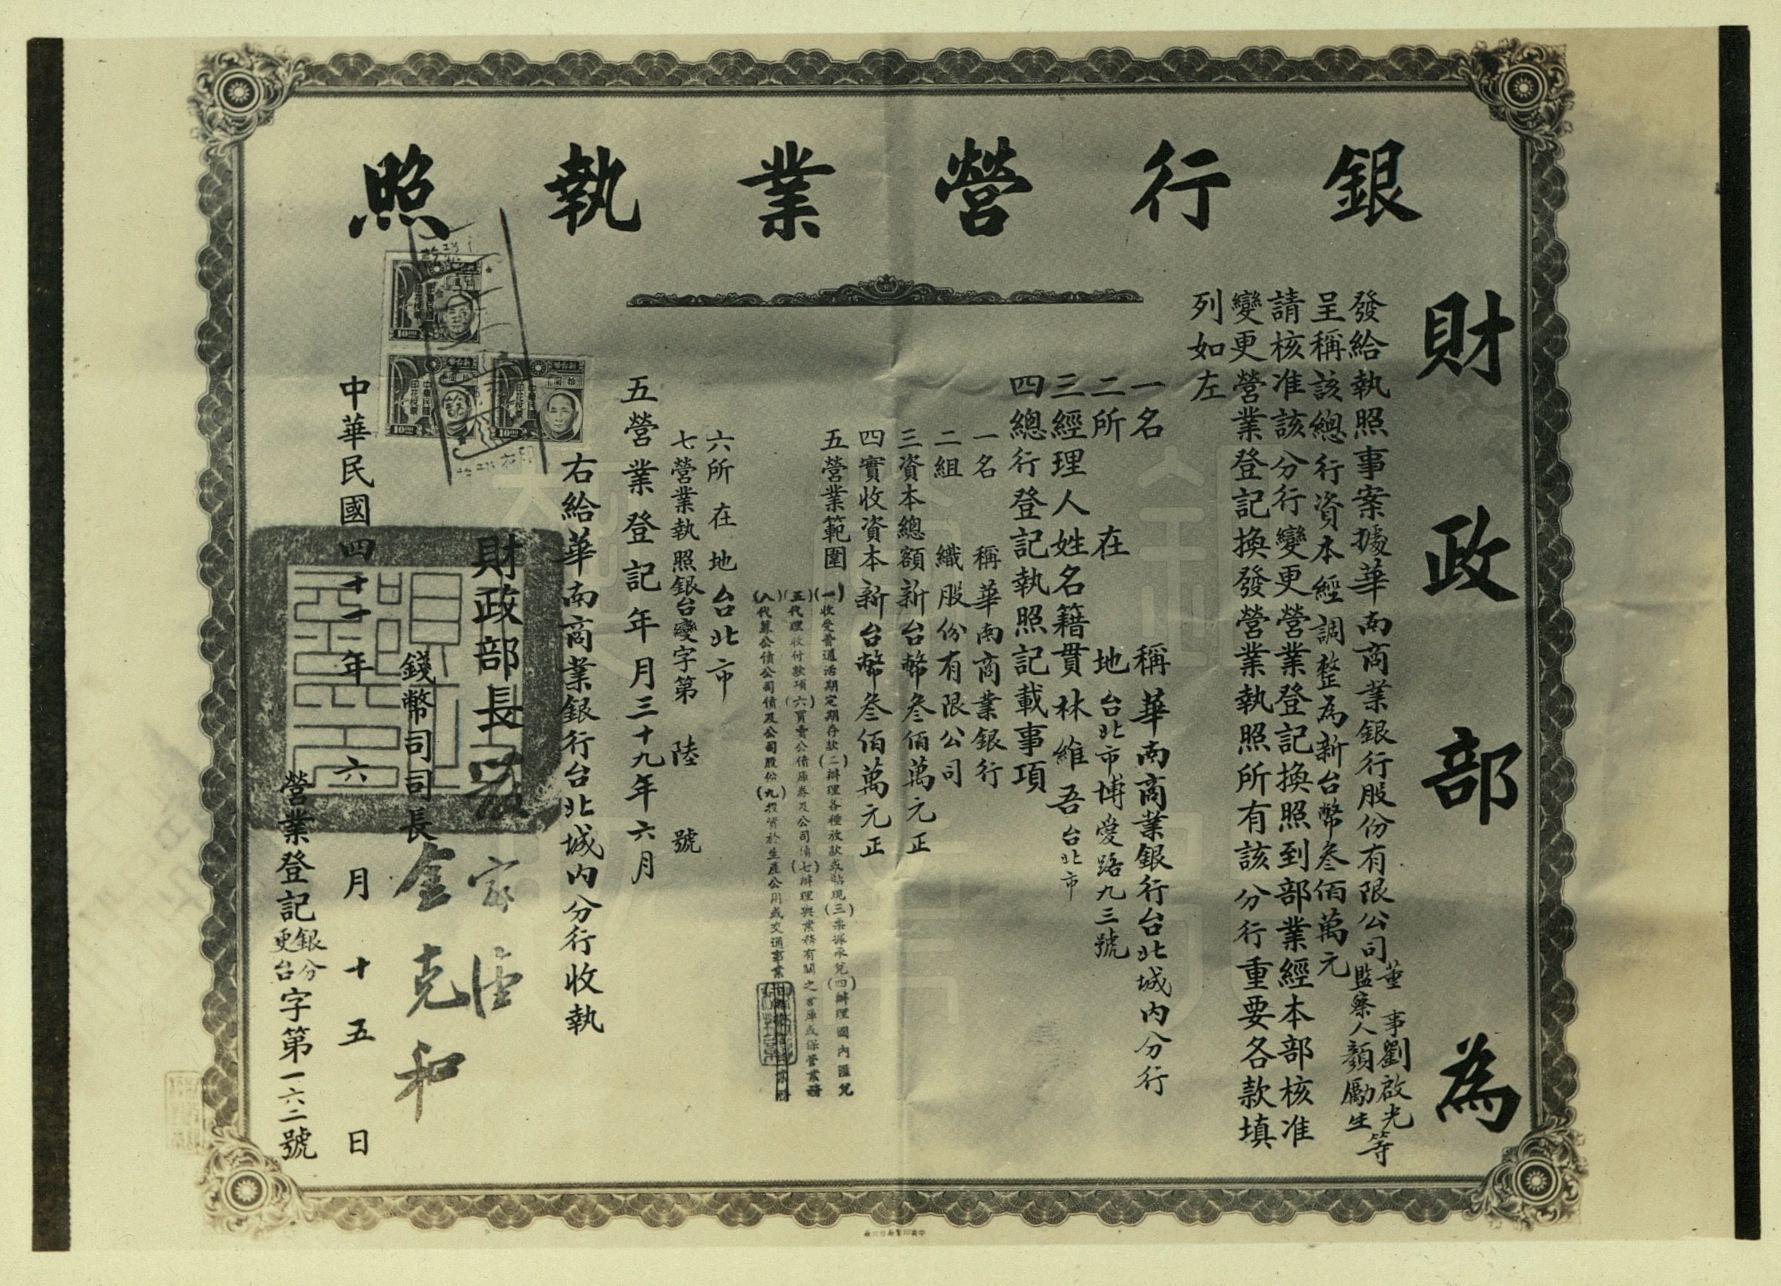 銀行營業執照
財政部為
發給執照事案據華南商業銀行股份有限公司董事劉啟光等監察人顏勵生
呈稱該總行資本經調整為新台幣叁佰萬元
請核准該分行變更營業登記換照到部業經本部核准
變更營業登記換發營業執照所有該分行重要各款填
列如左
一名稱華南商業銀行台北城內分行
二所在地台北市博愛路九三號
三經理人姓名籍貫林維吾台北市
四總行登記執照記載事項
一名稱華南商業銀行
二組織股份有限公司
三資本總額新台幣叁佰萬元正
四實收資本新台幣叁佰萬元正
五營業範圍
(一)收受普通活期定期存款(二)辦理各種放款或貼現(三)票據承兌(四)辦理國內匯兌
(五)代理收付款項(六)買賣公債庫券及公司債(七)辦理與業務有關之倉庫或保管業務
(八)代募公債公司債及公司股份(九)投資於生產公用或交通事業
六所在地台北市
七營業執照銀台變字第陸號
五營業登記年月三十九年六月
右給華南商業銀行台北城內分行收執
財政部長嚴家淦
錢幣司司長金克和
中華民國四十一年六月十五日
營業登記銀分更台字第一六二號
中華民國印花稅票
10.00
中華民國印花稅票
10.00
中華民國印花稅票
10.00